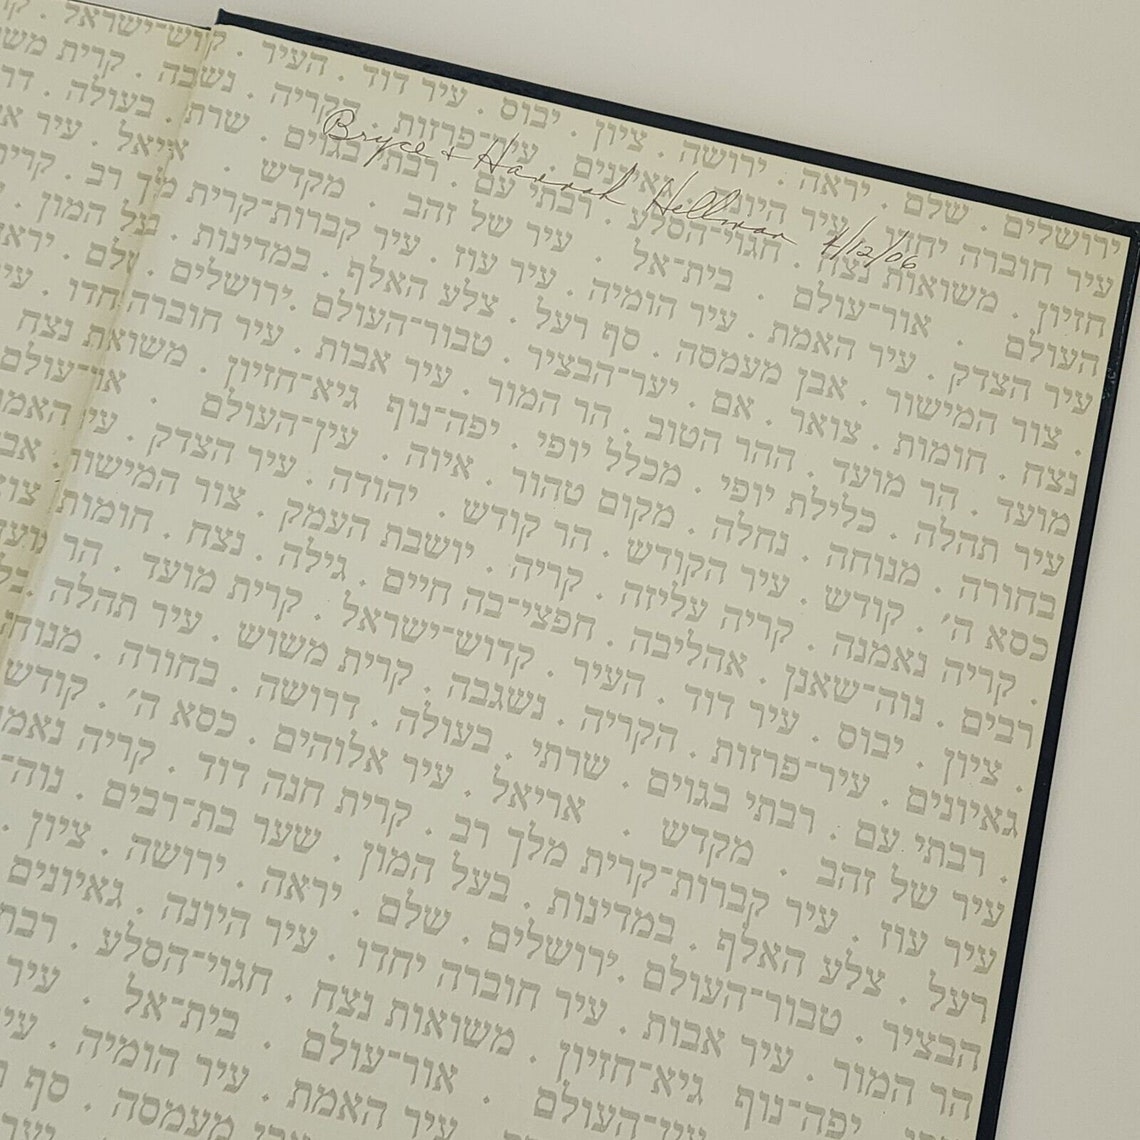 Bryce + Hannah Hellman 4/12/06
ירושלים . שלם . יראה . ירושה . ציון . יבוס . עיר דוד . העיר . קדוש־ישראל
עיר חוברה יחדו . עיר היונה . גאיונים . עיר־פרזות . הקריה . נשגבה . קרית
חזיון . משואות נצח . חגוי־הסלע . רבתי עם . רבתי בגוים . שרתי . בעולה
העולם . אור־עולם . בית־אל . עיר של זהב . מקדש . אריאל . עיר
עיר הצדק . עיר האמת . עיר הומיה . עיר עוז . עיר קברות־קרית מלך רב .
. צור המישור . אבן מעמסה . סף רעל . צלע האלף . במדינות . בעל המון .
נצח . חומות . צואר . אם . יער־הבציר . טבור־העולם .ירושלים . שלם .
מועד . הר מועד . ההר הטוב . הר המור . עיר אבות . עיר חוברה יחדו .
עיר תהלה . כלילת יופי . מכלל יופי . יפה־נוף גיא־חזיון . משואת נצח
בחורה . מנוחה . נחלה . מקום טהור . איוה . עין־העולם . אור־עולם
כסא ה׳ . קודש . עיר הקודש . הר קודש . יהודה . עיר הצדק . עיר
. קריה נאמנה . קריה עליזה . קריה . יושבת העמק . צור המישור .
רבים . נוה־שאנן . אהליבה . חפצי־בה חיים . גילה . נצח . חומות .
. ציון . יבוס . עיר דוד . העיר . קדוש־ישראל . קרית מועד . הר
גאיונים . עיר־פרזות . הקריה . נשגבה . קרית משוש . עיר תהלה .
. רבתי עם . רבתי בגוים . שרתי . בעולה . דרושה . בחורה .
עיר של זהב . מקדש . אריאל . עיר אלוהים . כסא ה׳ . קודש
עיר עוז . עיר קברות־קרית מלך רב . קרית חנה דוד . קריה
רעל . צלע האלף . במדינות . בעל המון . שער בת־רבים .
הבציר . טבור־העולם .ירושלים . שלם . יראה . ירושה . ציון .
הר המור . עיר אבות . עיר חוברה יחדו . עיר היונה . גאיונים
יפה־נוף גיא־חזיון . משואות נצח . חגוי־הסלע .
עין־העולם . אור־עולם . בית־אל . עיר
עיר האמת . עיר הומיה .
מעמסה . סף